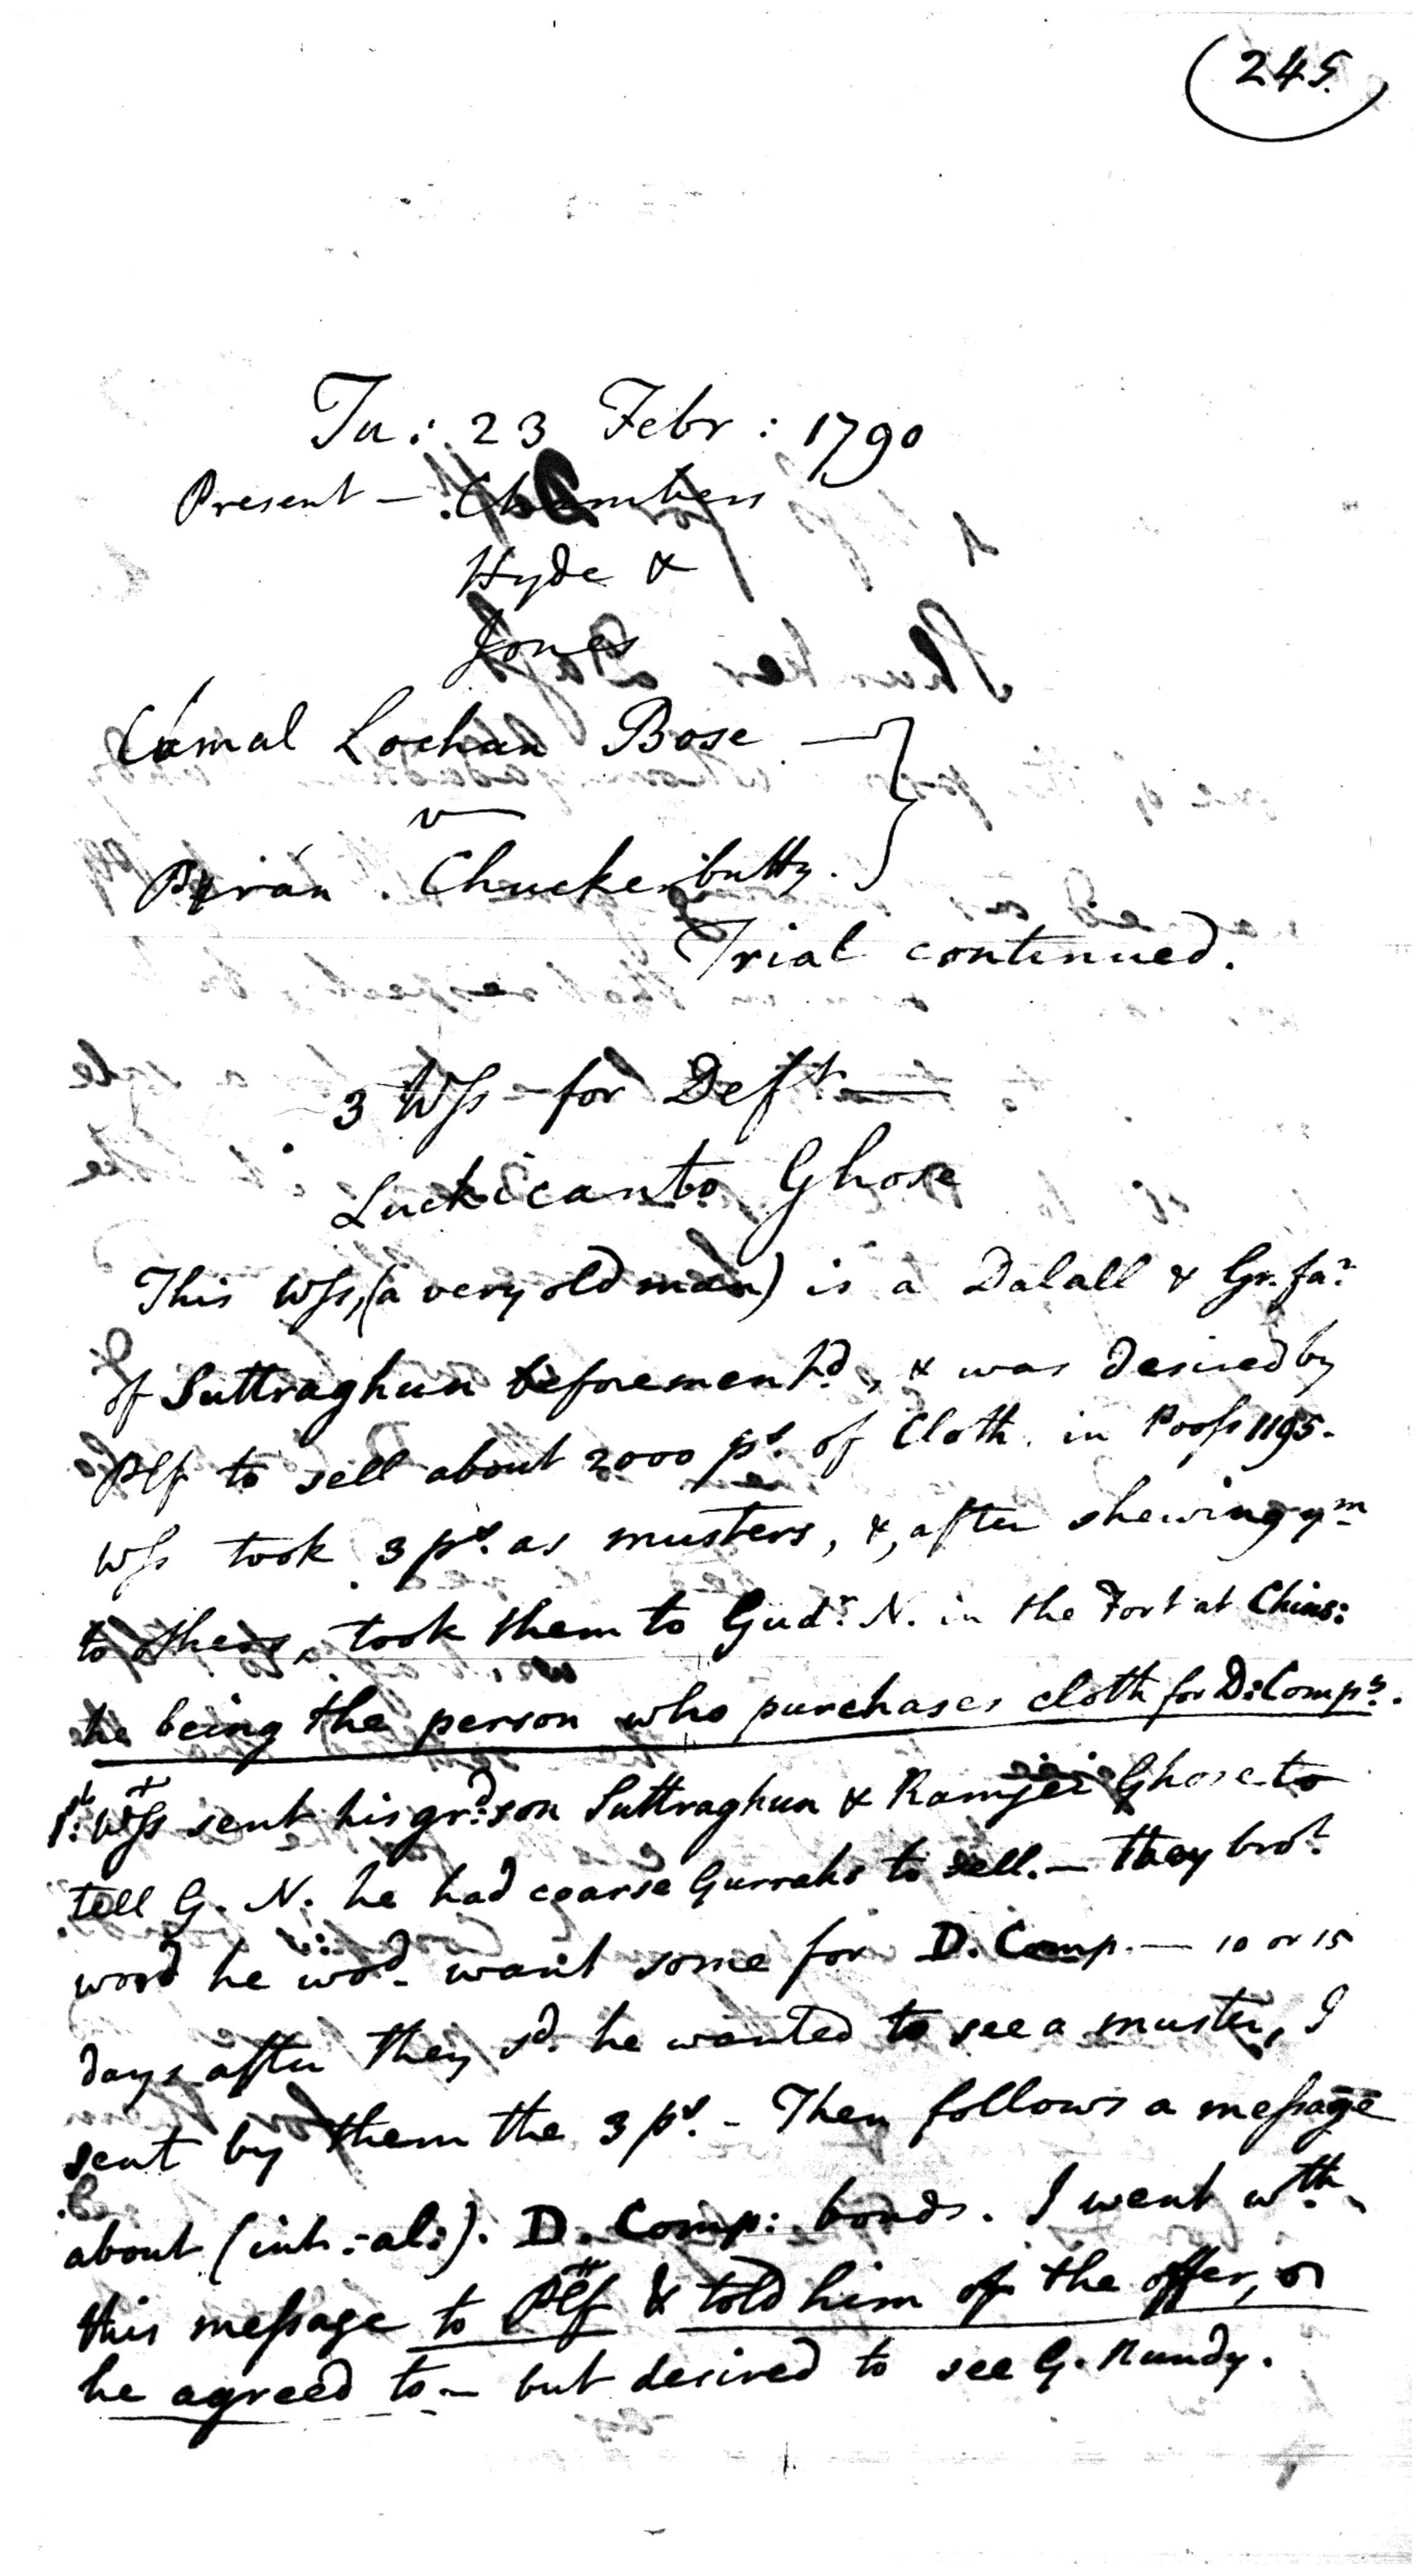 (245.)
Tu: 23 Febr: 1790
Present - Chambers
Hyde &
Jones
Camal Lochan Bose
v
Pirán Chuckerbutty.
Trial continued.
3 Wſs - for Deft.
Luckicanto Ghose
This Wſs, (a very old man) is a Dalall & Gr. far
of Suttraghun beforement'd, & was desired by
Plf to sell about 2000 ps. of Cloth in Pooſs 1195.
Wſs took 3 ps. as musters, &, after shewing ym
to others, took them to Gudr. N. in the Fort at Chins:
he being the person who purchases cloth for D: Compy.
1st. Wſs sent his grd. son Suttraghun & Ramjei Ghose to
tell G. N. he had coarse Gurrahs to sell. — they brot
word he wod. want some for D. Comp. — 10 or 15
days after they sd. he wanted to see a muster, I
sent by them the 3 ps. - Then follows a meſsage
about (int: al:). D. Comp: bonds. I went wth
this meſsage to Plf & told him of the offer,
he agreed to - but desired to see G. Nundy.